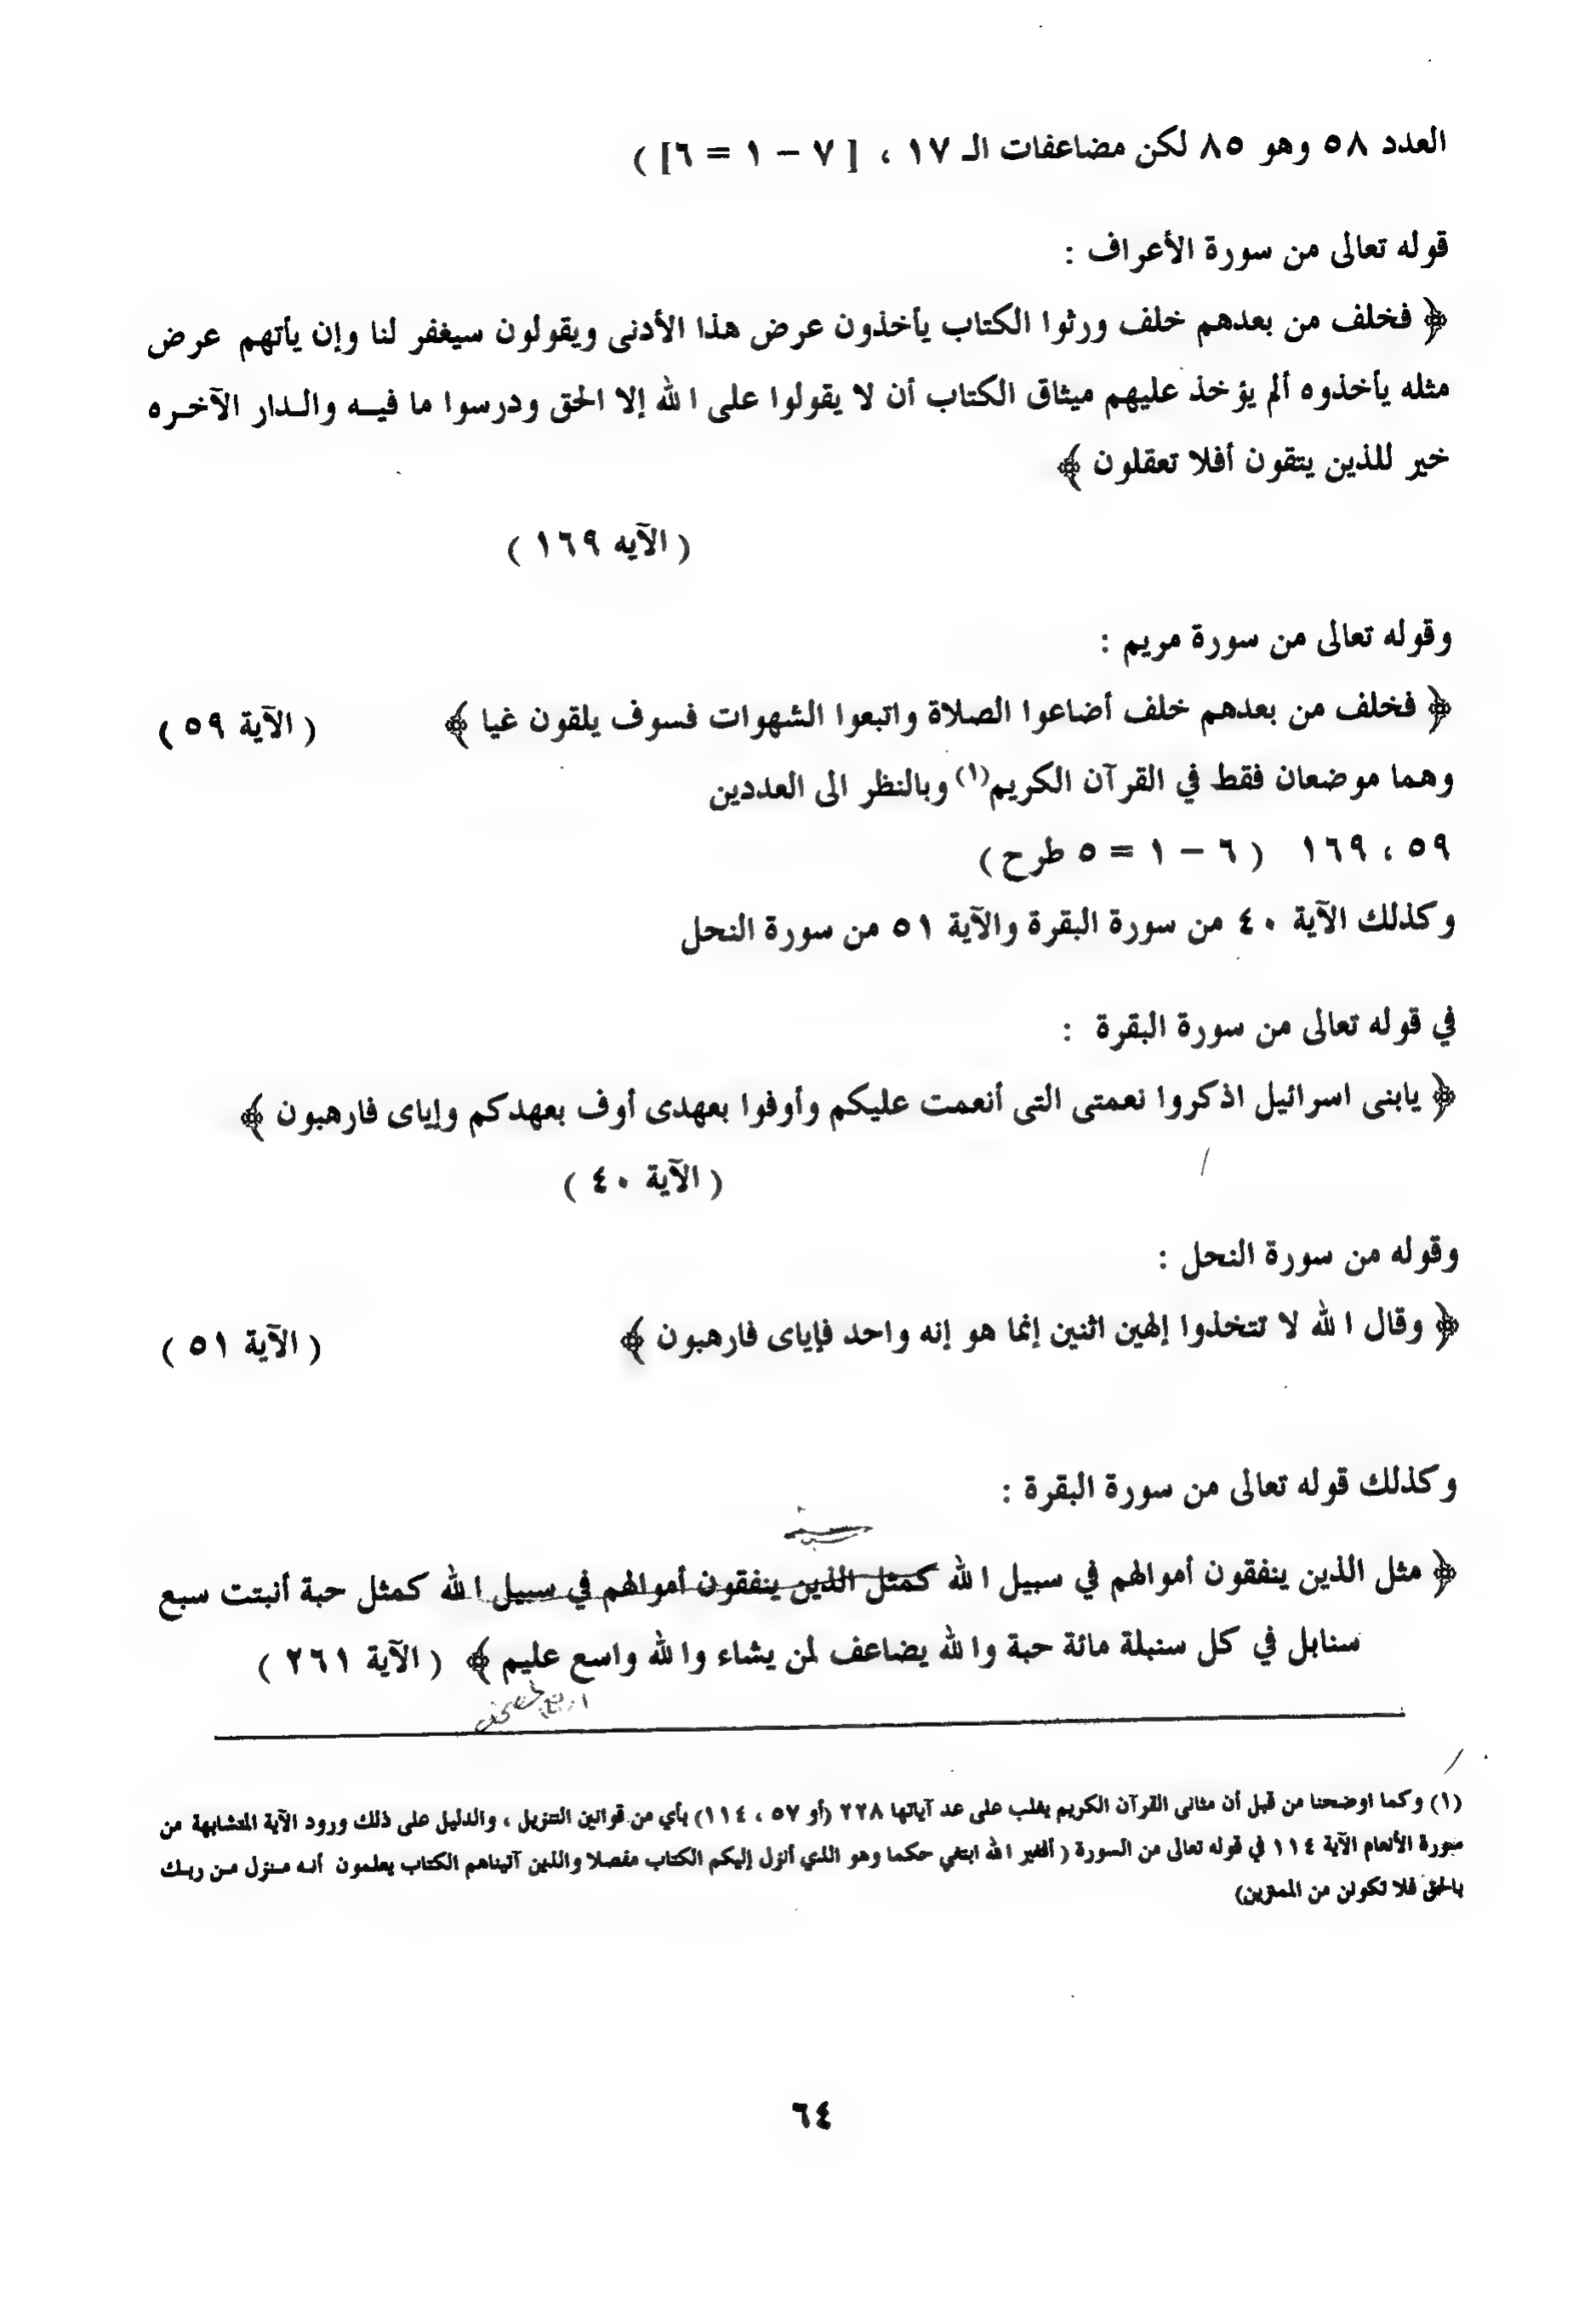 العدد ٥٨ وهو ٨٥ لكن مضاعفات الـ ١٧ ، [ ٧ − ١ = ٦] )
قوله تعالى من سورة الأعراف :
﴿ فخلف من بعدهم خلف ورثوا الكتاب يأخذون عرض هذا الأدنى ويقولون سيغفر لنا وإن يأتهم عرض
مثله يأخذوه ألم يؤخذ عليهم ميثاق الكتاب أن لا يقولوا على الله إلا الحق ودرسوا ما فيــه والـدار الآخـره
خير للذين يتقون أفلا تعقلون ﴾
( الآيه ١٦٩ )
وقوله تعالى من سورة مريم :
﴿ فخلف من بعدهم خلف أضاعوا الصلاة واتبعوا الشهوات فسوف يلقون غيا ﴾ ( الآية ٥٩ )
وهما موضعان فقط في القرآن الكريم(١) وبالنظر الى العددين
٥٩ ، ١٦٩ ( ٦ − ١ = ٥ طرح )
وكذلك الآية ٤٠ من سورة البقرة والآية ٥١ من سورة النحل
في قوله تعالى من سورة البقرة :
﴿ يابنى اسرائيل اذكروا نعمتى التى أنعمت عليكم وأوفوا بعهدى أوف بعهدكم وإياى فارهبون ﴾
( الآية ٤٠ )
وقوله من سورة النحل :
﴿ وقال الله لا تتخذوا إلهين اثنين إنما هو إنه واحد فإياى فارهبون ﴾ ( الآية ٥١ )
وكذلك قوله تعالى من سورة البقرة :
﴿ مثل الذين ينفقون أموالهم في سبيل الله كمثل الذين ينفقون أموالهم في سبيل الله كمثل حبة أنبتت سبع
سنابل في كل سنبلة مائة حبة والله يضاعف لمن يشاء والله واسع عليم ﴾ ( الآية ٢٦١ )
(١) وكما اوضحنا من قبل أن مثانى القرآن الكريم يغلب على عد آياتها ٢٢٨ (أو ٥٧ ، ١١٤) بأي من قوانين التنزيل ، والدليل على ذلك ورود الآية المتشابهة من
سورة الأنعام الآية ١١٤ في قوله تعالى من السورة ( أفغير الله ابتغي حكما وهو الذي أنزل إليكم الكتاب مفصلا والذين آتيناهم الكتاب يعلمون أنـه مـنزل مـن ربـك
بالحق فلا تكونن من الممترين)
٦٤